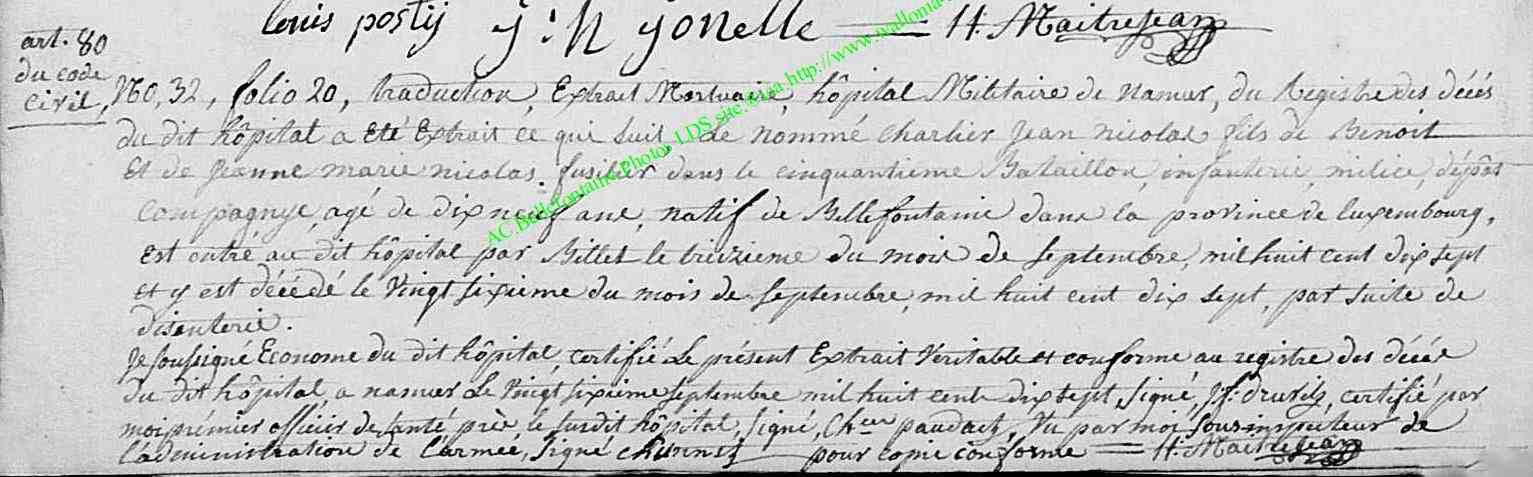 Louis postij J: N Jonelle = H. Maitrejean
art. 80
du code
civil,
No, 32, folio 20, traduction, Extrait Mortuaire, hôpital Militaire de namur, du Registre des décés
du dit hôpital a eté Extrait ce qui suit, le nommé charlier Jean nicolas fils de Benoit
Et de Jeanne marie nicolas. fusilier dans le cinquantieme Bataillon, infanterie, milice, dépôt
compagnye, agé de dix neuf ans, natif de Bellefontaine dans la province de luxembourg,
est entré au dit hôpital par Billet le treizieme du mois de septembre, mil huit cent dix sept
et y est décédé le vingt sixieme du mois de septembre, mil huit cent dix sept, par suite de
disenterie.
Je soussigné Econome du dit hôpital, certifié Le présent Extrait véritable et conforme au registre des décés
du dit hôpital, a namur Le vingt sixieme septembre mil huit cent dix sept, signé, certifié par
moi prémier officier de santé près le susdit hôpital, signé, Vu par moi sousinspecteur de
l'administration de l'armée, signé pour copie conforme = H. Maitrejean
AC Bellefontaine Photos LDS site: via http://www.wallonia